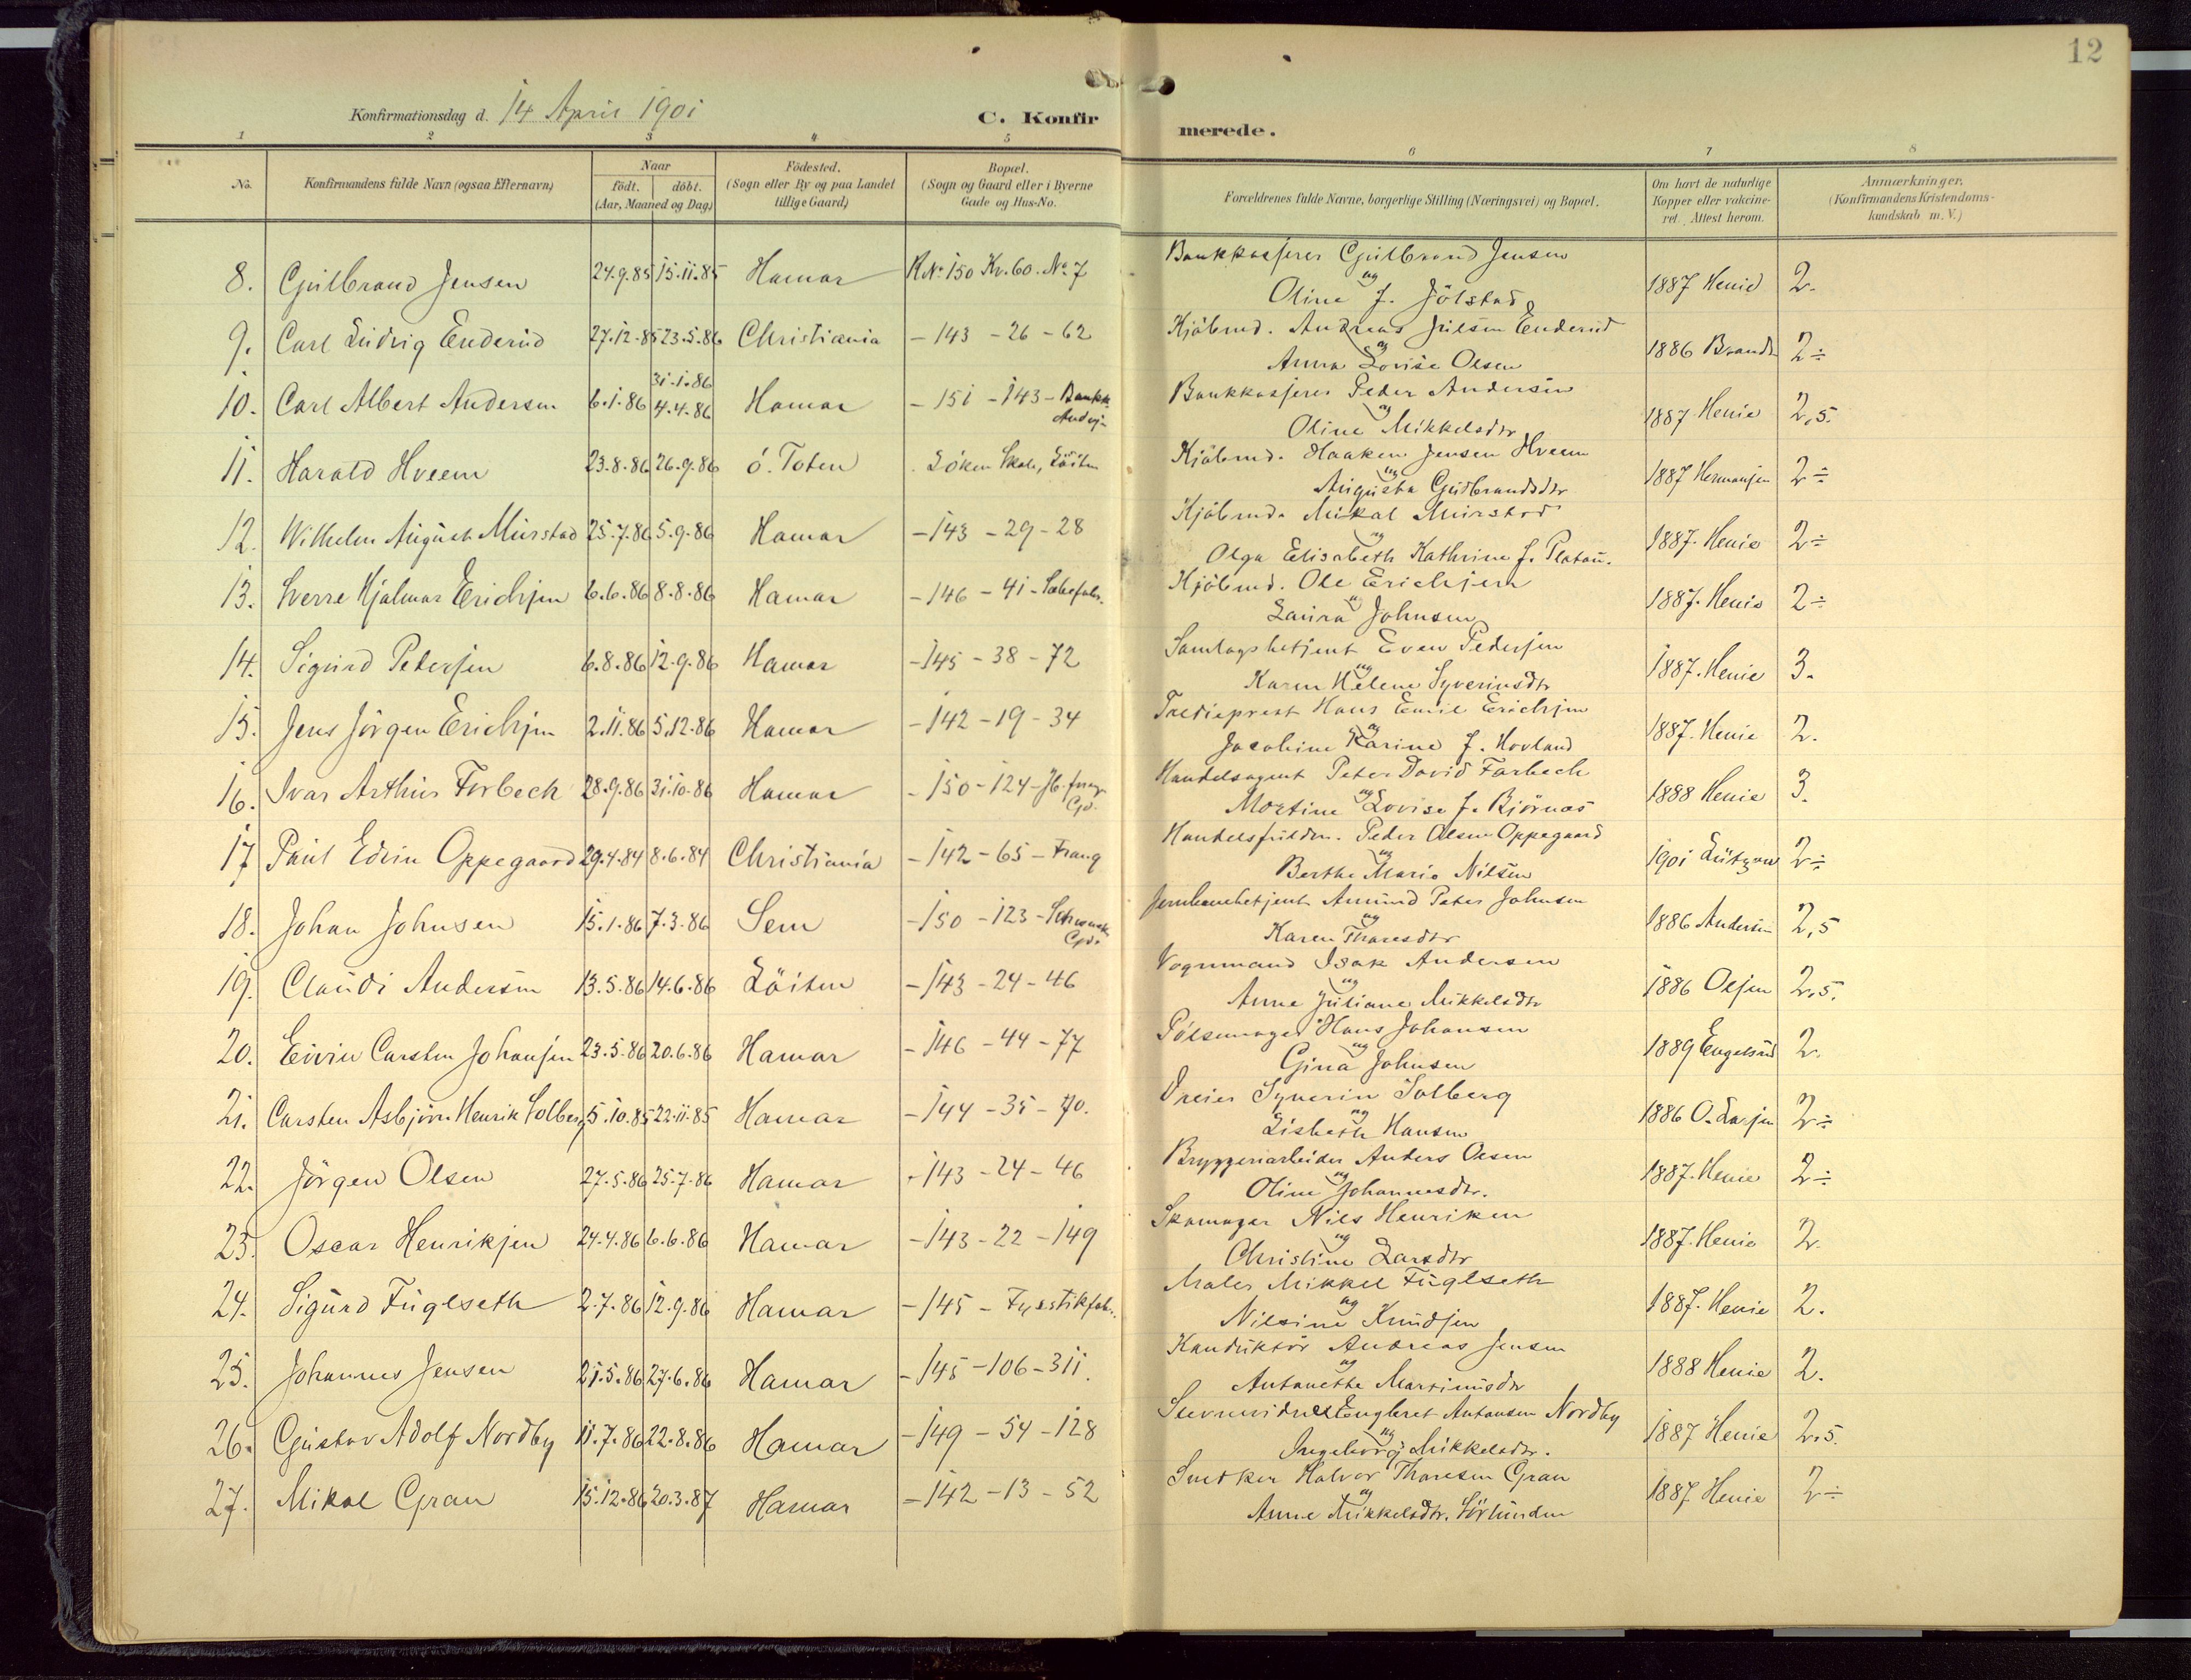 12
Konfirmationsdag d. 14 April 1901
C. Konfirmerede.
1 2 3 4 5 6 7 8
No. | Konfirmandens fulde Navn (ogsaa Efternavn) | Naar födt. döbt. (Aar, Maaned og Dag) | Födested. (Sogn eller By og paa Landet tillige Gaard) | Bopæl. (Sogn og Gaard eller i Byerne Gade og Hus-No. | Forældrenes fulde Navne, borgerlige Stilling (Næringsvei) og Bopæl. | Om havt de naturlige Kopper eller vakcineret. Attest herom. | Anmærkninger. (Konfirmandens Kristendomskundskab m. V.)
8. Gulbrand Jensen 24.9.85 15.11.85 Hamar RNo 150 Kv. 60. No 7 Bankkasserer Gulbrand Jensen og Oline f. Jölstad 1887 Henie 2.
9. Carl Ludvig Enderud 27.12.85 23.5.86 Christiania - 143 - 26 - 62 Kjöbmd. Andreas Julsen Enderud og Anna Lovise Olsen 1886 Brandt 2÷
10. Carl Albert Andersen 6.1.86 31.1.86 4.4.86 Hamar - 151 - 143 - Bankk. Bankkasserer Peder Andersen og Oline Mikkelsdtr 1887 Henie 2,5.
11. Harald Hveem 23.8.86 26.9.86 ö. Toten Löken Skole, Löiten Kjöbmd. Haaken Jensen Hveem og Augusta Gudbrandsdtr 1887 Hermansen 2÷
12. Wilhelm August Murstad 25.7.86 5.9.86 Hamar - 143 - 29 - 28 Kjöbmd. Mikal Murstad og Olga Elisabeth Kathrine f. Platou. 1887. Henie 2÷
13. Sverre Hjalmar Erichsen 6.6.86 8.8.86 Hamar - 146 - 41 - Kjöbmd. Ole Erichsen og Laura Johnsen 1887. Henie 2÷
14. Sigurd Petersen 6.8.86 12.9.86 Hamar - 145 - 38 - 72 Samlagsbetjent Even Pedersen og Karen Helene Syverinsdtr 1887. Henie 3.
15. Jens Jörgen Erichsen 2.11.86 5.12.86 Hamar - 142 - 19 - 34 Trædieprest Hans Emil Erichsen og Jacobine Karine f. Hovland 1887. Henie 2.
16. Ivar Arthur Forbech 28.9.86 31.10.86 Hamar - 150 - 124 - Handelsagent Peter David Farbech og Martine Lovise f. Björnæs 1888 Henie 3.
17 Paul Edvin Oppegaard 29.4.84 8.6.84 Christiania - 142 - 65 - Frang Handelsfuldm. Peder Olsen Oppegaard og Berthe Marie Nilsen 1901 Lützow 2÷
18. Johan Johnsen 15.1.86 7.3.86 Sem - 150 - 123 - Jernbanebetjent Amund Peter Johnsen og Karen Tharesdtr 1886 Andersen 2,5
19. Claudi Andersen 13.5.86 14.6.86 Löiten - 143 - 24 - 46 Vognmand Isak Andersen og Anne Juliane Mikkelsdtr 1886 Olsen 2,5.
20. Eivin Carsten Johansen 23.5.86 20.6.86 Hamar - 146 - 44 - 77 Pölsemager Hans Johansen og Gina Johnsen 1889 Engelsrud 2.
21. Carsten Asbjörn Henrik Solberg 5.10.85 22.11.85 Hamar - 144 - 35 - 70. Dreier Syverin Solberg og Lisbeth Hansen 1886 O. Larsen 2÷
22. Jörgen Olsen 27.5.86 25.7.86 Hamar - 143 - 24 - 46 Bryggeriarbeider Anders Olsen og Oline Johannesdtr. 1887. Henie 2÷
23. Oscar Henriksen 24.4.86 6.6.86 Hamar - 143 - 22 - 149 Skomager Nils Henriksen og Christine Larsdtr 1887. Henie 2.
24. Sigurd Fuglseth 2.7.86 12.9.86 Hamar - 145 - Fyrstikfabr. Maler Mikkel Fuglseth og Nilsine Knudsen 1887. Henie 2.
25. Johannes Jensen 21.5.86 27.6.86 Hamar - 145 - 106 - 311. Konduktör Andreas Jensen og Antonette Martinusdtr 1888 Henie 2.
26. Gustav Adolf Nordby 11.7.86 22.8.86 Hamar - 149 - 54 - 128 Stevnevidne Engbret Antonsen Nordby og Ingeborg Mikkelsdtr. 1887 Henie 2,5.
27. Mikal Gran 15.12.86 20.3.87 Hamar - 142 - 13 - 52 Snedker Halvor Tharesen Gran og Anne Mikkelsdtr. Sörlunden 1887 Henie 2÷